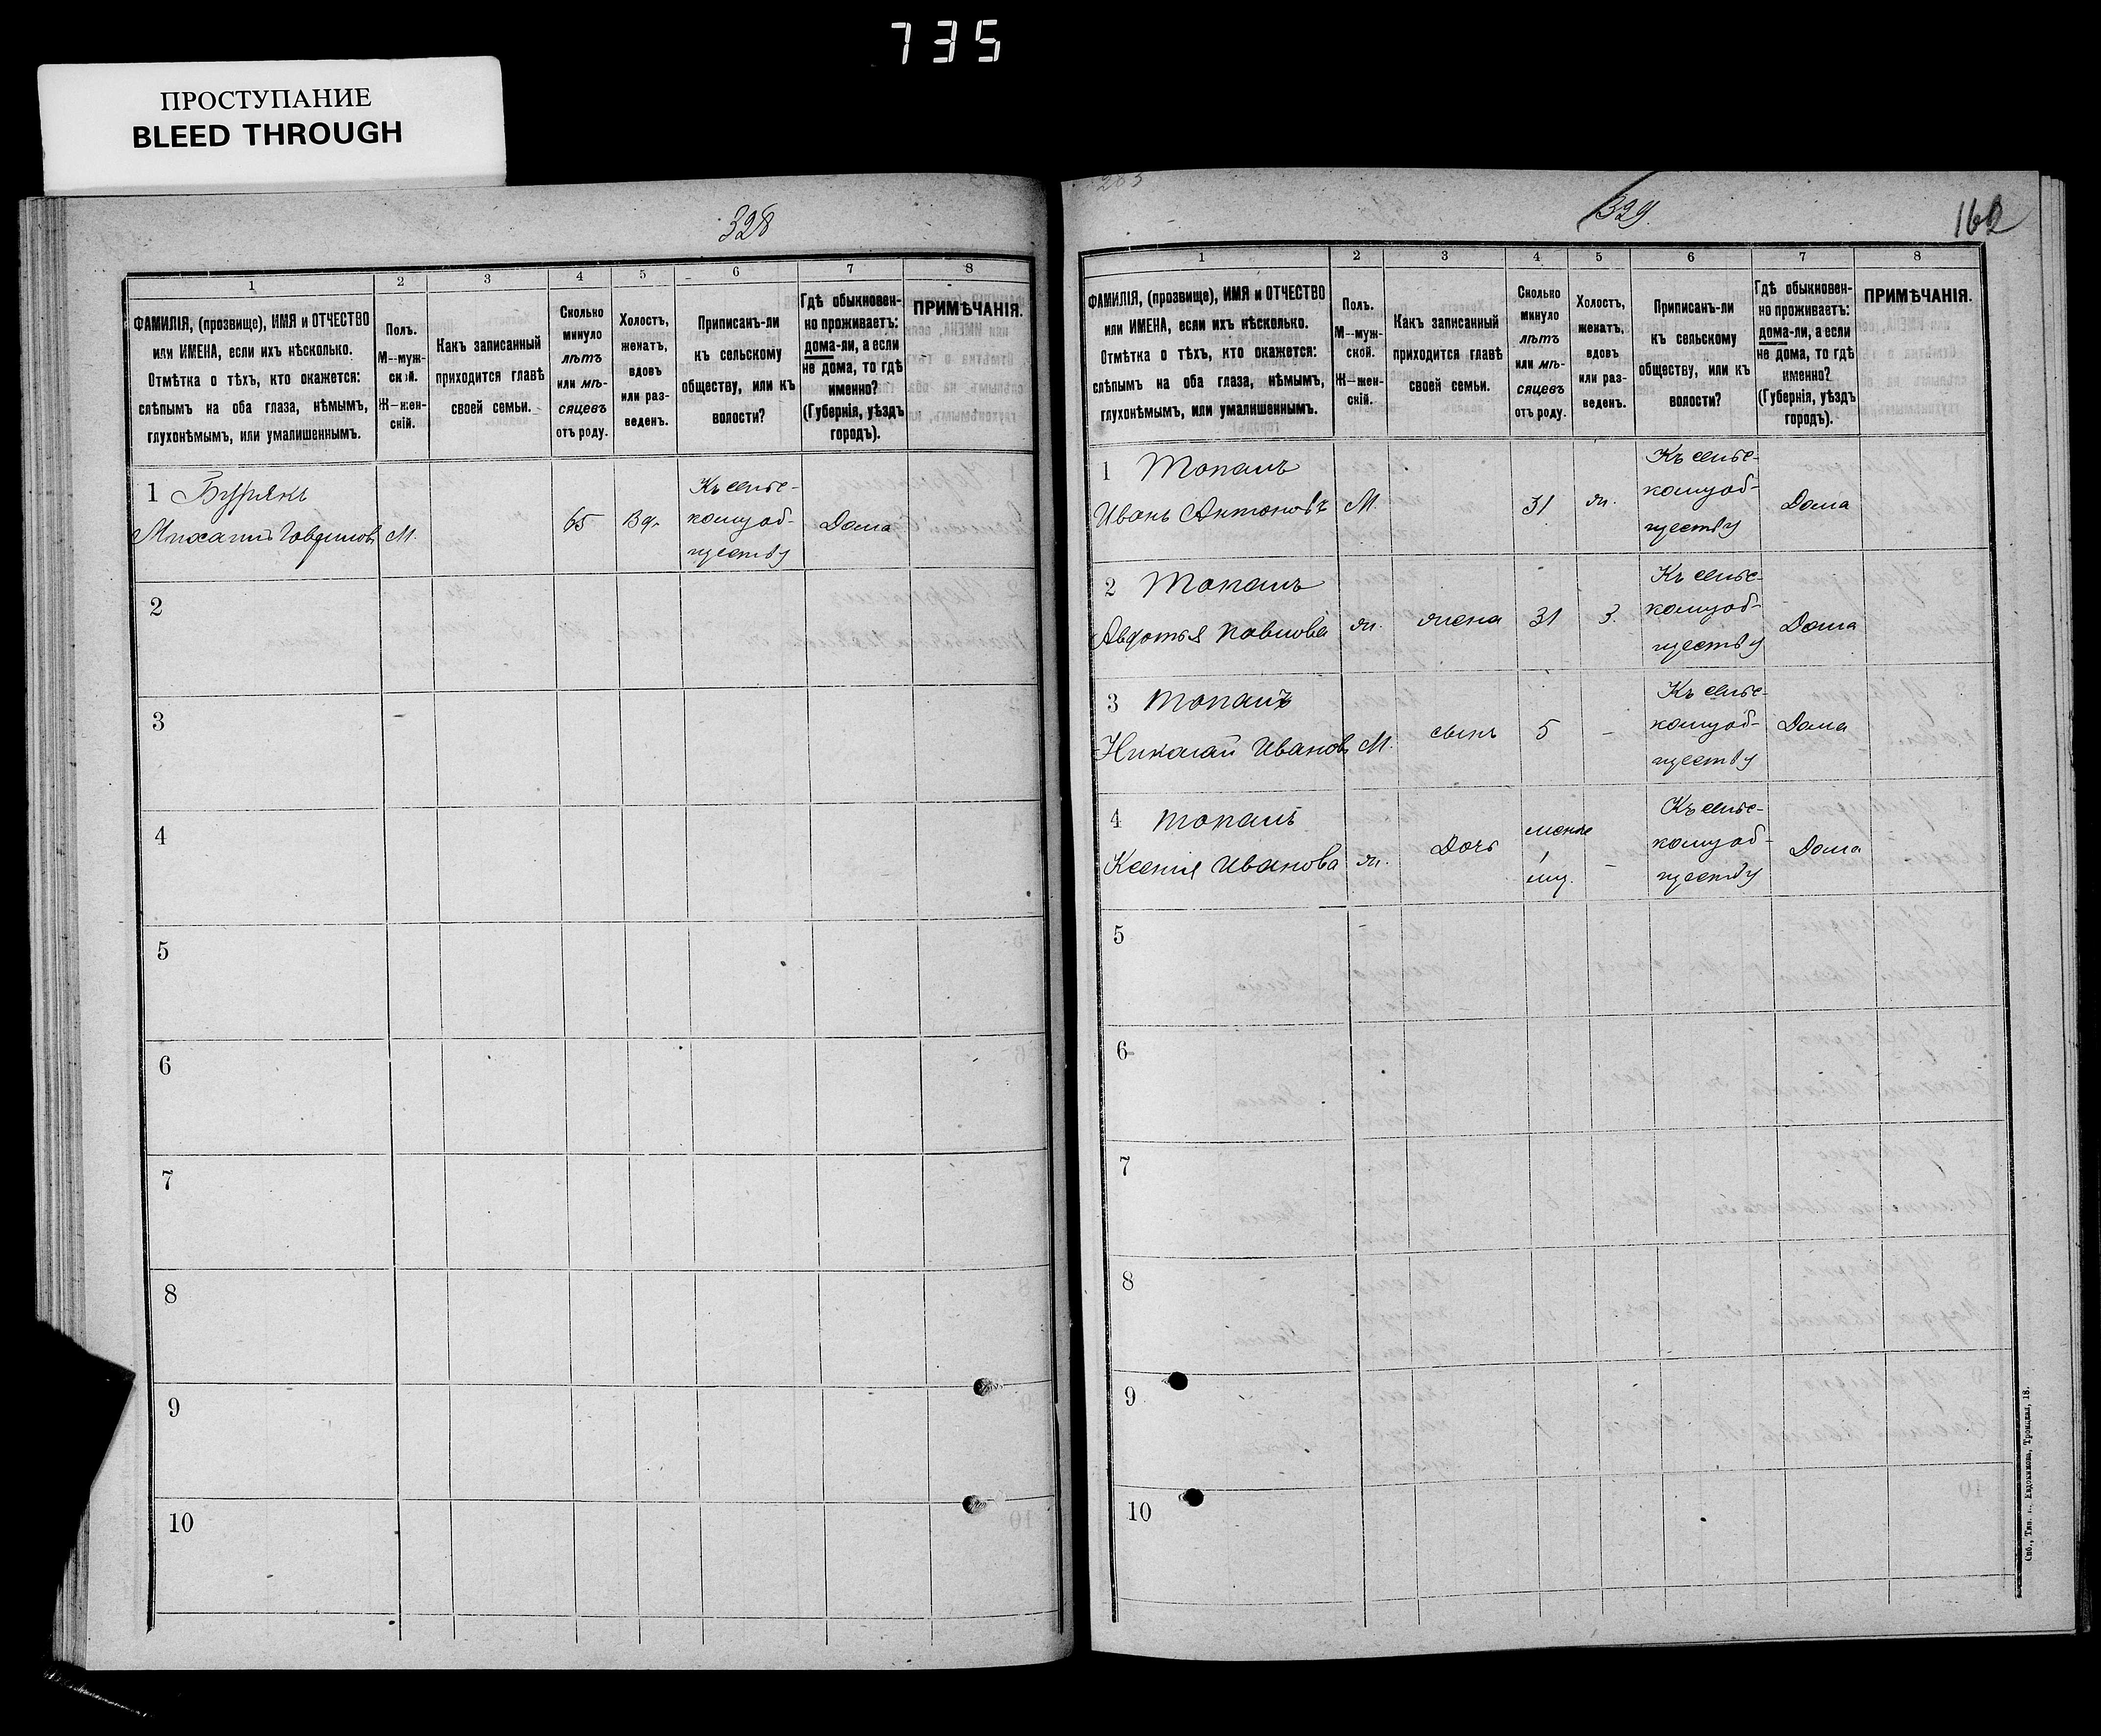 735
ПРОСТУПАНИЕ
BLEED THROUGH
328
1 2 3 4 5 6 7 8
ФАМИЛІЯ, (прозвище), ИМЯ и ОТЧЕСТВО
или ИМЕНА, если ихъ нѣсколько.
Отмѣтка о тѣхъ, кто окажется:
слѣпымъ на оба глаза, нѣмымъ,
глухонѣмымъ, или умалишеннымъ.
Полъ.
М—муж-
ской.
Ж—жен-
скій.
Какъ записанный
приходится главѣ
своей семьи.
Сколько
минуло
лѣтъ
или мѣ-
сяцевъ
отъ роду.
Холостъ,
женатъ,
вдовъ
или раз-
веденъ.
Приписанъ-ли
къ сельскому
обществу, или къ
волости?
Гдѣ обыкновен-
но проживаетъ:
дома-ли, а если
не дома, то гдѣ
именно?
(Губернія, уѣздъ
городъ).
ПРИМѢЧАНІЯ.
1 Бурякъ
Михаилъ Гаврилов М. 65 Вд. Къ сельс-
кому об-
ществу Дома
2
3
4
5
6
7
8
9
10
329
162
1 2 3 4 5 6 7 8
ФАМИЛІЯ, (прозвище), ИМЯ и ОТЧЕСТВО
или ИМЕНА, если ихъ нѣсколько.
Отмѣтка о тѣхъ, кто окажется:
слѣпымъ на оба глаза, нѣмымъ,
глухонѣмымъ, или умалишеннымъ.
Полъ.
М—муж-
ской.
Ж—жен-
скій.
Какъ записанный
приходится главѣ
своей семьи.
Сколько
минуло
лѣтъ
или мѣ-
сяцевъ
отъ роду.
Холостъ,
женатъ,
вдовъ
или раз-
веденъ.
Приписанъ-ли
къ сельскому
обществу, или къ
волости?
Гдѣ обыкновен-
но проживаетъ:
дома-ли, а если
не дома, то гдѣ
именно?
(Губернія, уѣздъ
городъ).
ПРИМѢЧАНІЯ.
1 Топалъ
Иванъ Антоновъ М. 31 ж. Къ сельс-
кому об-
ществу Дома
2 Топалъ
Авдотья Павлова ж. жена 31 З. Къ сельс-
кому об-
ществу Дома
3 Топалъ
Николай Ивановъ М. сынъ 5 - Къ сельс-
кому об-
ществу Дома
4 Топалъ
Ксенія Иванова ж. Дочь менѣе
1
мц. - Къ сельс-
кому об-
ществу Дома
5
6
7
8
9
10
Спб., Тип. Евдокимова, Троицкая, 18.